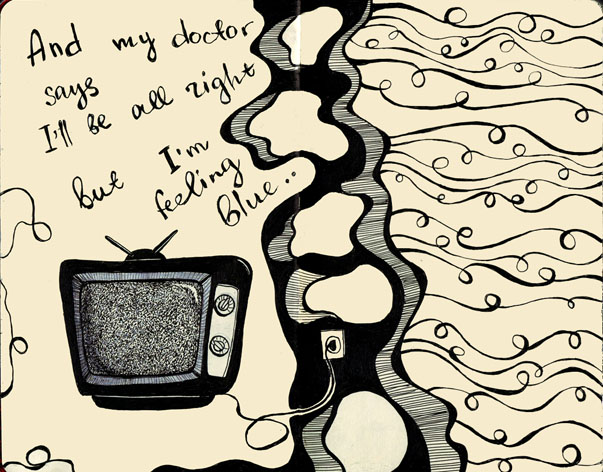 And my doctor
says
I'll be all right
but I'm
feeling
blue..